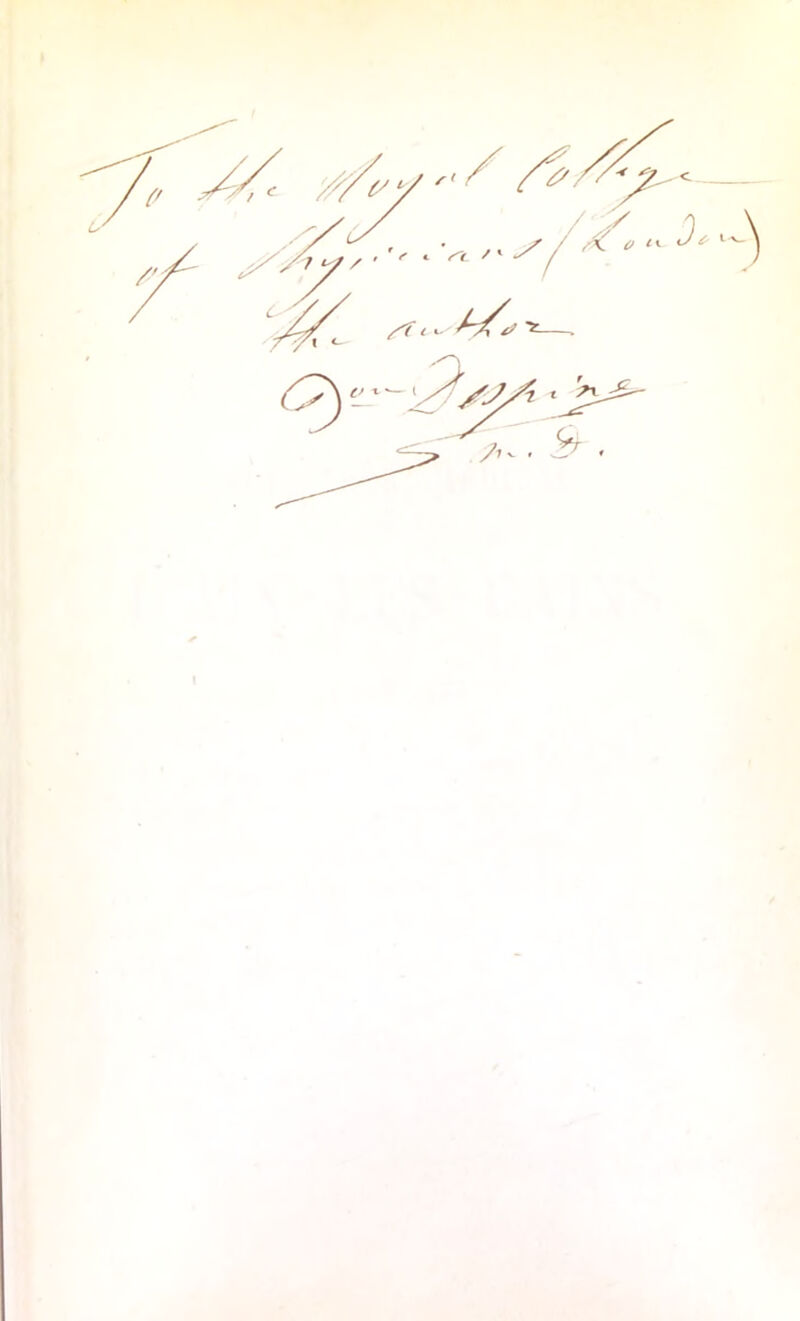 To the Royal College
of Physicians (London)
the author
Despine
M. D.